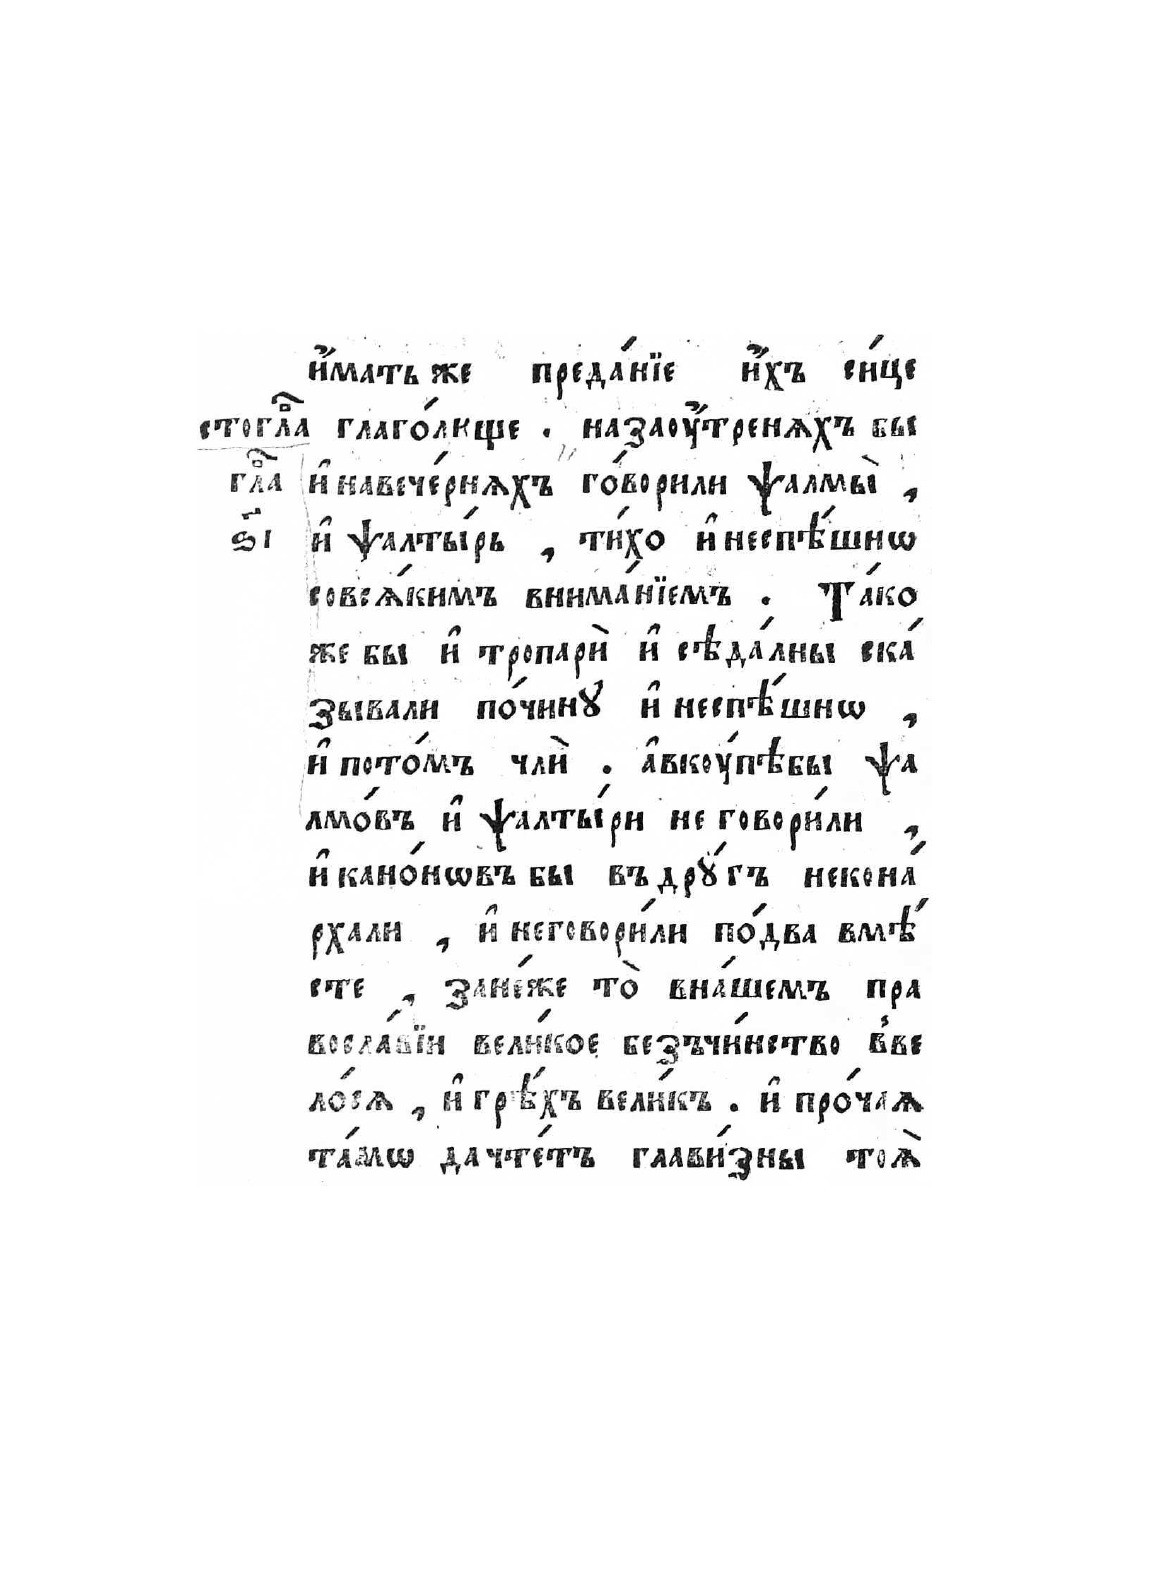 и҆́мать же преда́нїе и҆́хъ си́це
стогла̑в глаго́лище . на заоу҆́тренѧхъ бы
гла̑в и҆ на вече́рнѧхъ го́ворили ѱалмы̀ ,
ѕ҃і и҆ ѱалты́рь , ти́хо и҆ неспѣ́шнѡ
совсѧ́кимъ внима́нїемъ . Та́ко
же бы и҆ тропарѝ и҆ сѣда́лны ска́
зывали по́чинꙋ и҆ неспѣ́шнѡ ,
и҆ пото́мъ члѝ . а҆ вкоу́пѣбы ѱа
лмо́въ и҆ ѱалты́ри не говори́ли ,
и҆ кано́нѡвъ бы въ дрꙋ́гъ некона́
рхали , и҆ неговори́ли по́два вмѣ́
сте , зане́же то̀ вна́шемъ пра
восла́вїи вели́кое безъчи́нство в̾ве
ло́сѧ , и҆ грѣ́хъ вели́къ . и҆ про́чаѧ
та́мѡ да чте́тъ глави́зны тоѧ̀